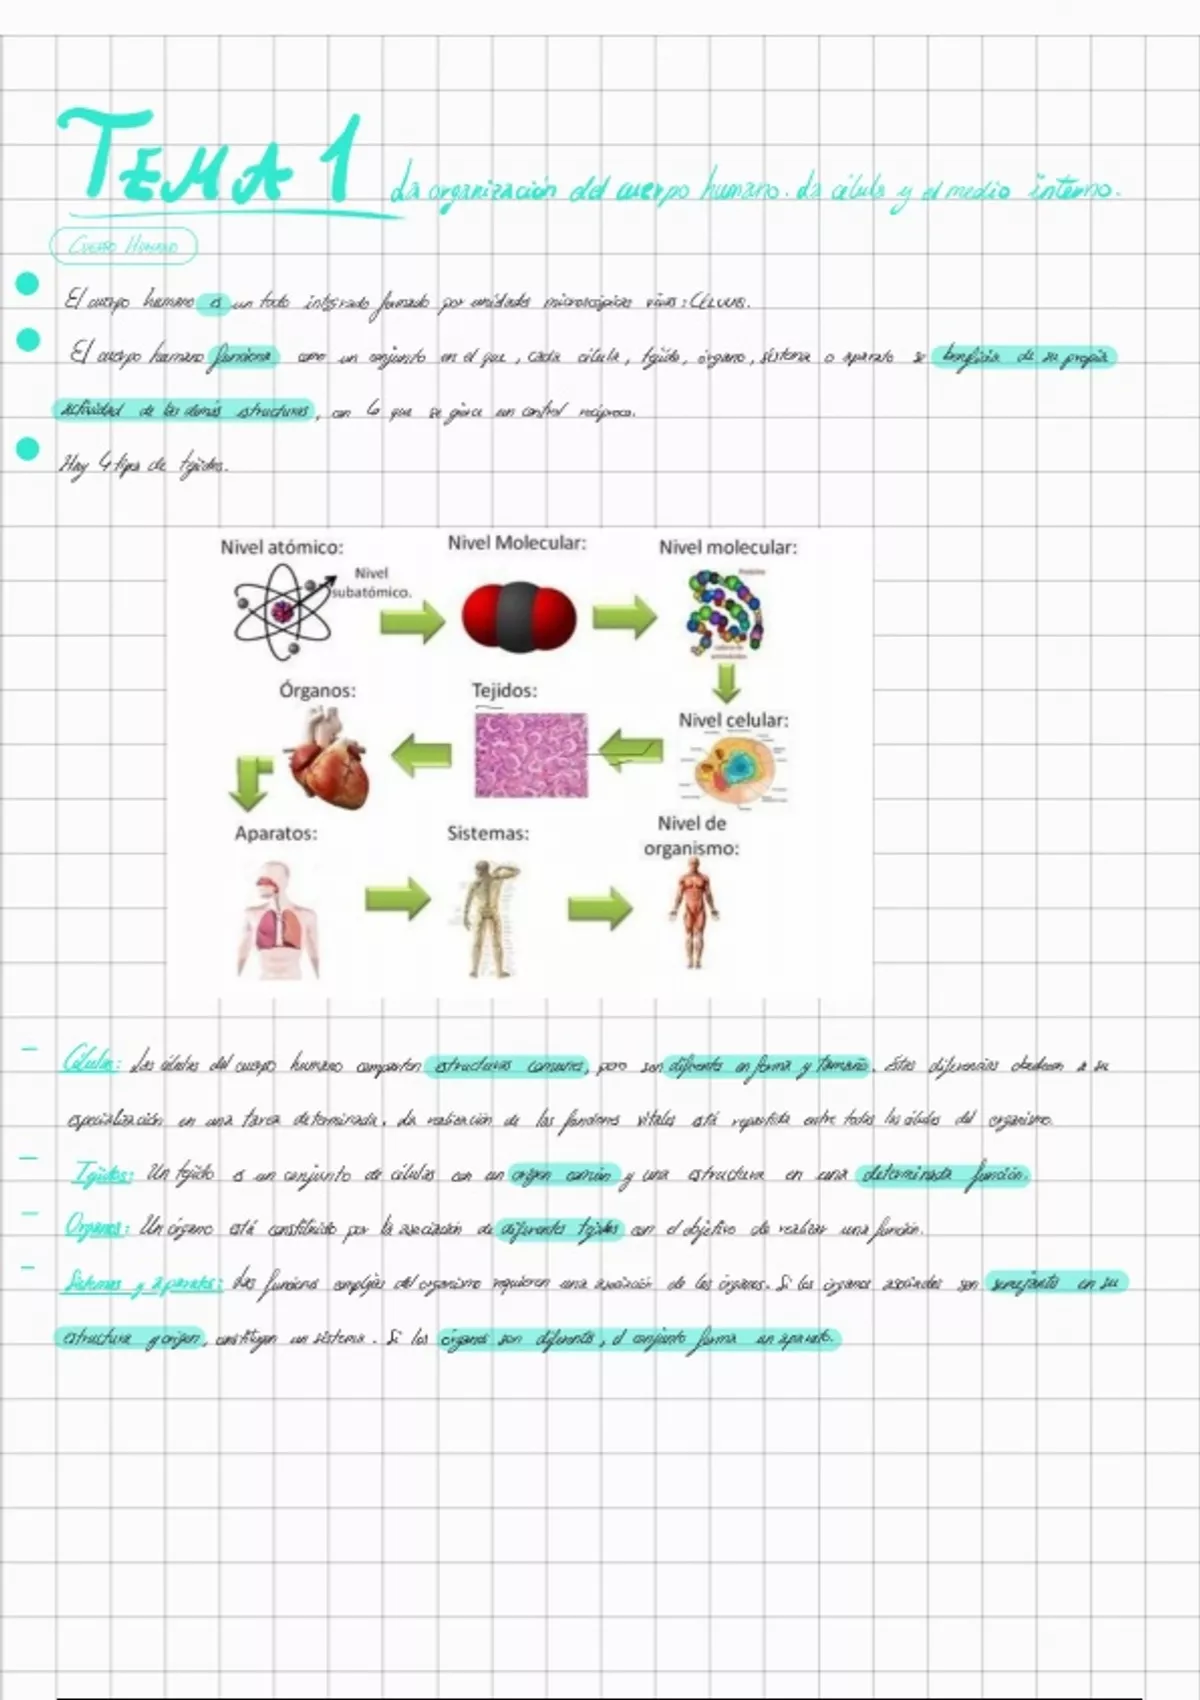 TEMA 1 La organización del cuerpo humano. La célula y el medio interno.
CUERPO HUMANO
El cuerpo humano es un todo integrado formado por unidades microscópicas vivas: CÉLULAS.
El cuerpo humano funciona como un conjunto en el que, cada célula, tejido, órgano, sistema o aparato se beneficia de su propia
actividad de las demás estructuras, con lo que se ejerce un control recíproco.
Hay 4 tipos de tejidos.
Nivel atómico:
Nivel Molecular:
Nivel molecular:
Nivel
subatómico.
Proteína
Órganos:
Tejidos:
Nivel celular:
Aparatos:
Sistemas:
Nivel de
organismo:
Células: Las células del cuerpo humano comparten estructuras comunes, pero son diferentes en forma y tamaño. Estas diferencias obedecen a su
especialización en una tarea determinada. La realización de las funciones vitales está repartida entre todas las células del organismo.
Tejidos: Un tejido es un conjunto de células con un origen común y una estructura en una determinada función.
Órganos: Un órgano está constituido por la asociación de diferentes tejidos con el objetivo de realizar una función.
Sistemas y aparatos: Las funciones complejas del organismo requieren una asociación de los órganos. Si los órganos asociados son semejantes en su
estructura y origen, constituyen un sistema. Si los órganos son diferentes, el conjunto forma un aparato.